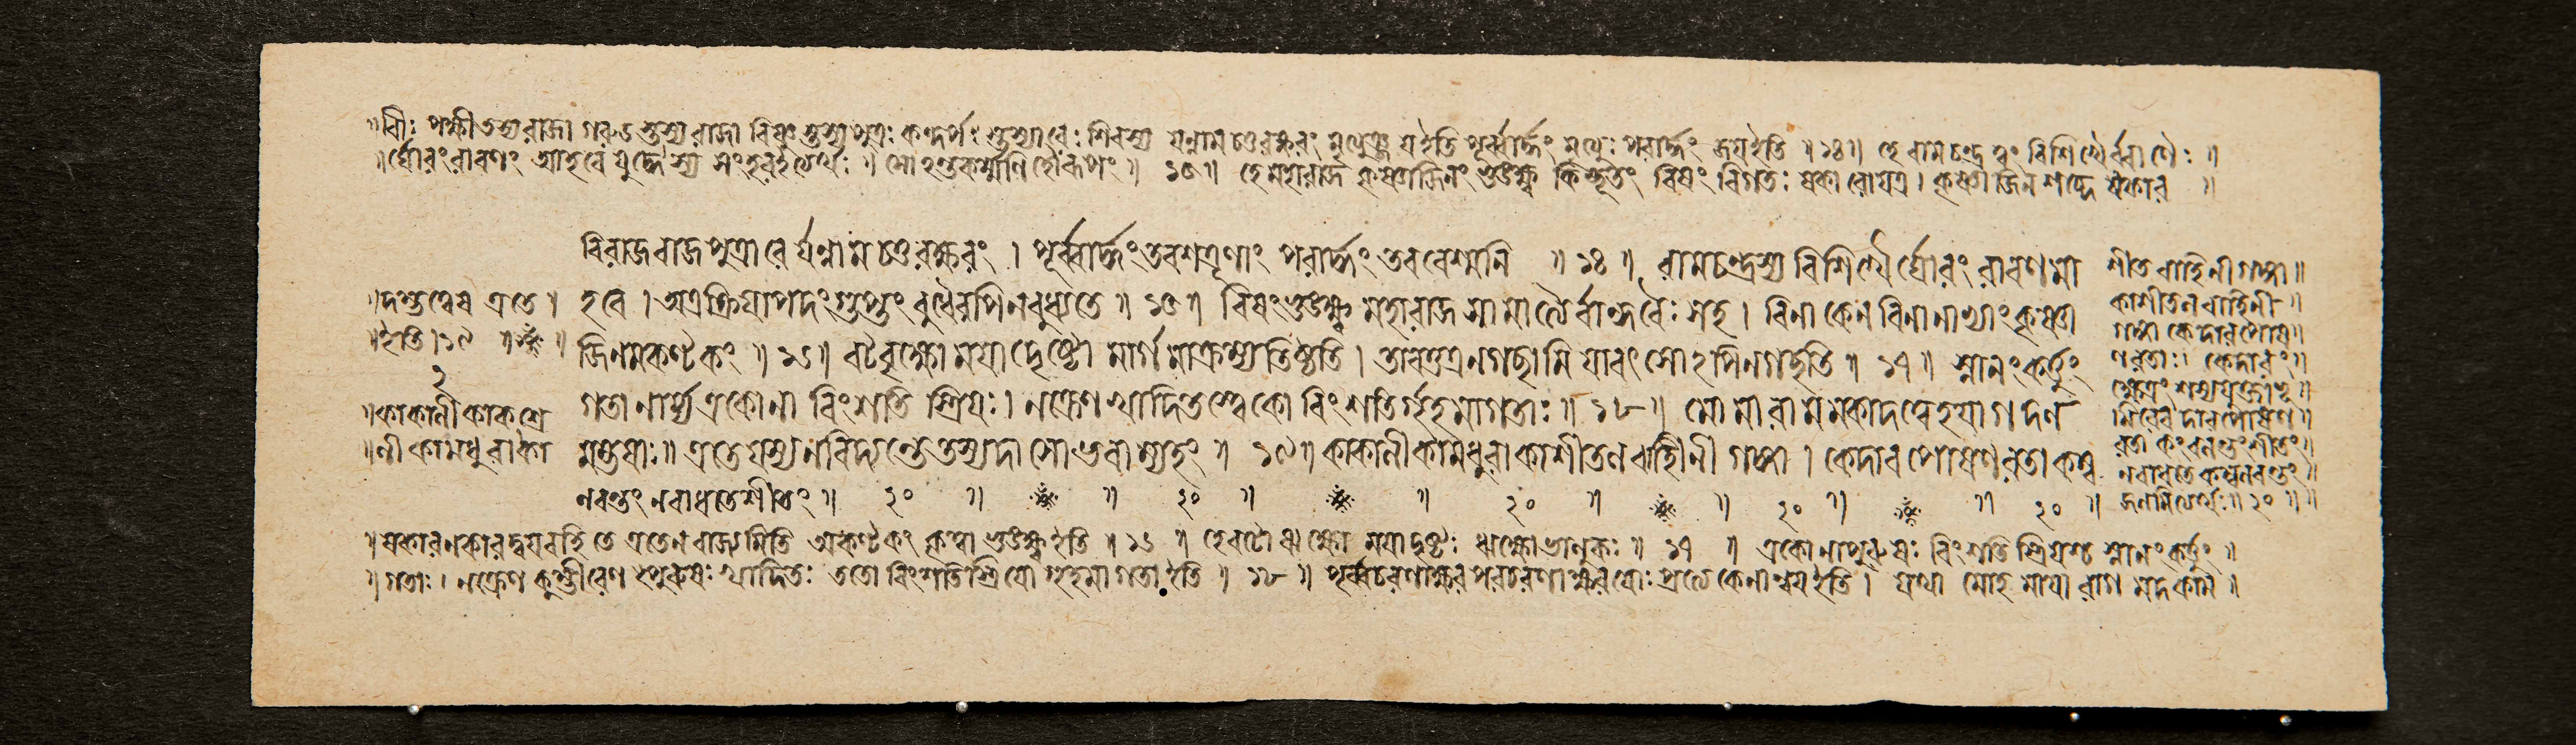 ॥বীঃ পক্ষী তস্য রাজা গরুড স্তস্য রাজা বিষ্ণু স্তস্য পুত্রঃ কন্দর্পঃ স্তস্যারেঃ শিবস্য যন্নাম চতুরক্ষরং মৃত্যুঞ্জয়ইতি পূর্ব্বার্দ্ধং মৃত্যুঃ পরার্দ্ধং জয়ইতি ॥ ১৪॥ হে রামচন্দ্র ত্বং বিশিখৈর্ব্বাণৈঃ ॥
॥র্ঘোরং রাবণং আহবে যুদ্ধে স্য সংহরইত্যর্থঃ ॥ ১৫॥ হেমহারাজ কৃষ্ণাজিনং ভুঙ্ক্ষ্ব কিম্ভূতং বিষং বিগতঃ ষকারোযত্র। কৃষ্ণাজিন শব্দে ষকার ॥
বিরাজরাজপুত্রারে র্যন্নাম চতুরক্ষরং । পূর্ব্বার্দ্ধং তবশত্রূণাং পরার্দ্ধং তববেশ্মনি ॥ ১৪ ॥ রামচন্দ্রস্য বিশিখৈ র্ঘোরং রাবণমা
হবে । অত্রক্রিযাপদংগুপ্তং বুধৈরপিনবুধ্যতে ॥ ১৫॥ বিষংভুঙ্ক্ষ্ব মহারাজ সামাত্যৈর্বান্ধবৈঃ সহ। বিনা কেন বিনানাভ্যাং কৃষ্ণা
জিনমকণ্টকং ॥ ১৬॥ বটবৃক্ষো ময়াদৃষ্টো মার্গমাক্রম্যতিষ্ঠতি । তাবত্তত্রনগছামি যাবৎ সোঽপিনগছতি ॥ ১৭॥ স্নানংকর্ত্তুং
গতা নার্য্য একোনা বিংশতি স্ত্রিয়ঃ। নক্রেণ খাদিতস্ত্বেকো বিংশতির্গৃহমাগতাঃ ॥ ১৮॥ মোমারামমকাদম্বেহযাগদণ
মন্তযাঃ॥ এতেযস্যনবিদ্যন্তেতস্যদাসোভবাম্যহং ॥ ১৯॥ কাকালী কামধুরা কাশীতলবাহিনী গঙ্গা । কেদারপোষণরতা কম্ব
লবন্তং নবাধতেশীতং ॥ ২০ ॥ ॥ ২০ ॥ ॥ ২০ ॥ ॥ ২০ ॥ ॥ ২০ ॥
॥দন্তত্বেষ এতে।
॥ইতি।১৯ ॥ ॥
২
॥কাকালী কাকশ্রে
॥ণী কামধুরা কা
শীতলবাহিনীগঙ্গা॥
কাশীতলবাহিনী ॥
গঙ্গা কেদারপোষ॥
ণরতাঃ। কেদারং॥
ক্ষেত্রং শস্যযুক্তভূ॥
মিরেব দারপোষণ॥
রতা কংবলন্তংশীতং॥
নবাধতেকম্বলবন্তং॥
জনমিত্যর্থঃ॥ ২০ ॥॥
॥ষকারনকারদ্বয়রহিতে এতেন রাজ্যমিতি অকণ্টকং কৃত্বা ভুঙ্ক্ষ্বইতি ॥ ১৬॥ হেবটো ঋক্ষো ময়াদৃষ্টঃ ঋক্ষোভালুকঃ ॥ ১৭ ॥ একোনাপুরুষঃ বিংশতি স্ত্রিয়শ্চ স্নানংকর্ত্তুং ॥
॥গতাঃ। নক্রেণ কুম্ভীরেণ পুরুষঃ খাদিতঃ ততো বিংশতিস্ত্রিয়ো গৃহমাগতা ইতি ॥ ১৮॥ পূর্ব্বচরণাক্ষর পরচরণাক্ষরয়োঃ প্রত্যেকেনান্বয়ইতি। যথা মোহ মাযা রাগ মদ কাম ॥